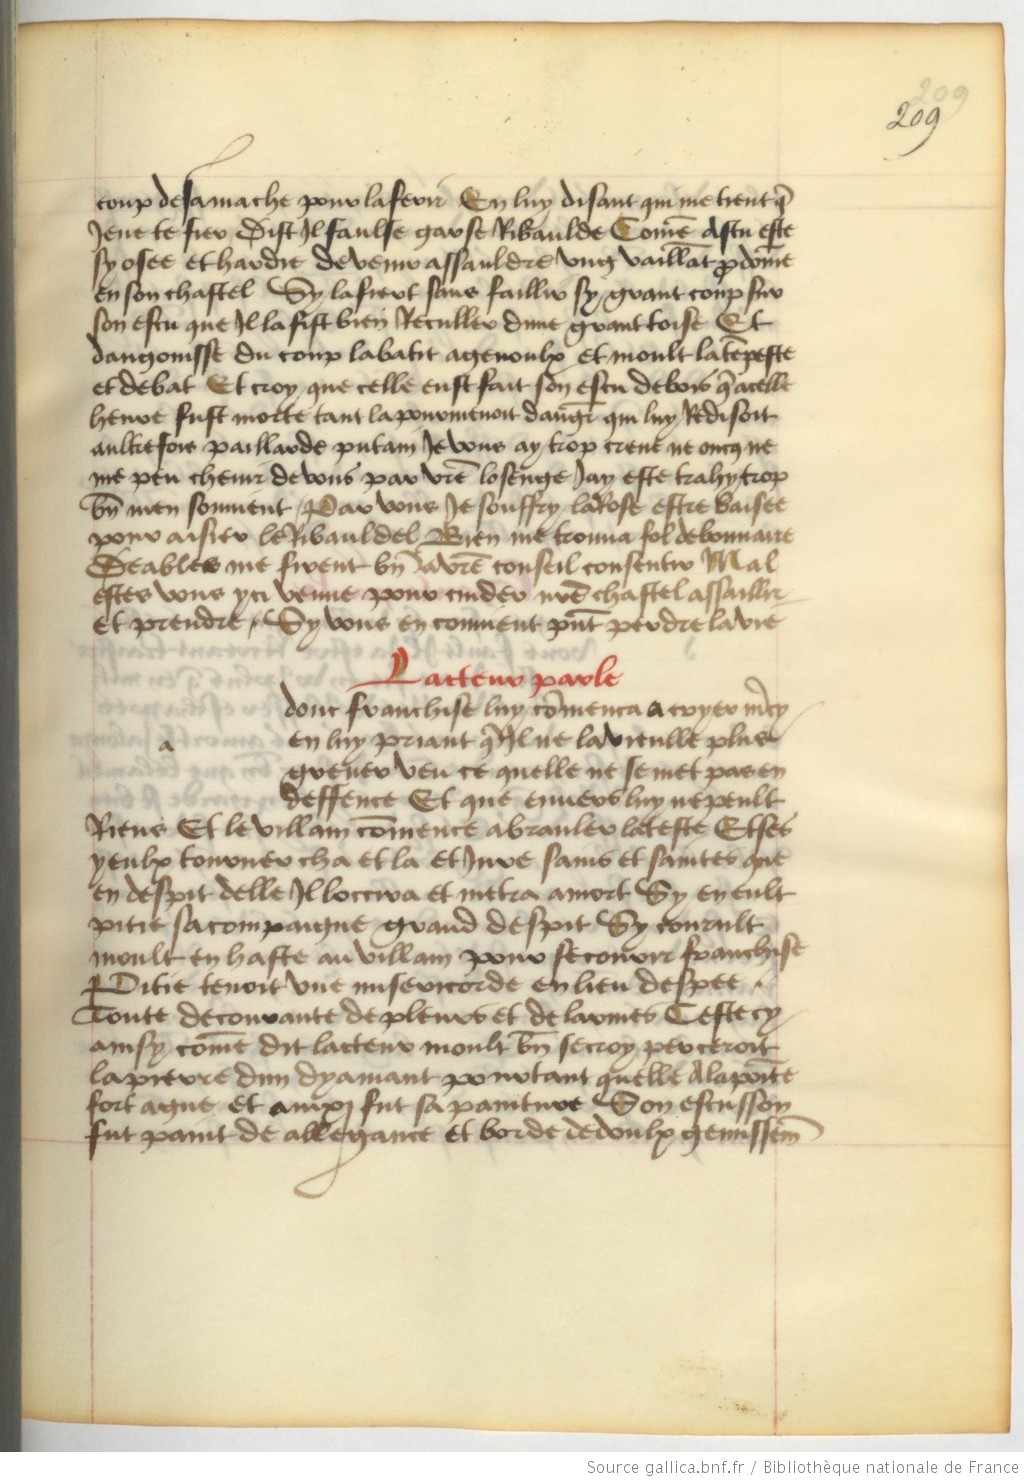 209
coup de sa mache pour la ferir En luy disant qui me tient q̄
Je ne te fier Dist Il faulse garse Ribaulde Com̄e As tu este
sy osee et hardie de venir assauldre ung vaillāt p̄dōme
en son chastel Sy la fiert sans faillir sy grant coup sur
son escu que Il la fist bien Reculler dune grant toise Et
dangoisse du coup labatit agenoulx et moult la tēpeste
et debat Et croy que celle eust fait son escu de bois q̄ a celle
heure fust morte tant la pourmenoit daūgr̄ qui luy Redisoit
aultresfois paillarde putain Je vous ay trop creue ne oncq̄ ne
me peu chevir de vous par vr̄e losenge Jay este trahy trop
bn̄ men souvient Par vous Je souffry la Rose estre baisee
pour aisier le Ribauldel Bien me trouva fol debonnaire
Deables me firent bn̄ a vr̄e conseil consentir Mal
estes vous ycy venue pour cuider nr̄e chastel assaillir
et prendre. Sy vous en convient pn̄t perdre la vie
Lacteur parle
donc franchise luy cōmenca a cryer m̄cy
a
en luy priant q̄ Il ne la vieulle plus
grever veu ce quelle ne se met pas en
deffence Et que envers luy ne peult
Riens Et le villain cōmence a branler la teste Et ses
yeulx tourner cha et la et Jure sains et saintes que
en despit delle Il loccira et metra a mort Sy en eult
pitie sa compaigne grand despit Sy courult
moult en haste au villain pour secourir franchise
Pitie tenoit une misericorde en lieu despee.
Toute decourante de pleurs et de larmes Ceste cy
ainsy com̄e dit lacteur moult bn̄ se croy perceroit
la pierre dun dyamant pourtant quelle A la poīte
fort ague et ainxi fut sa painture Son escusson
fut paint de allegance et borde de doulx gemissem̄
Source gallica.bnf.fr / Bibliothèque nationale de France